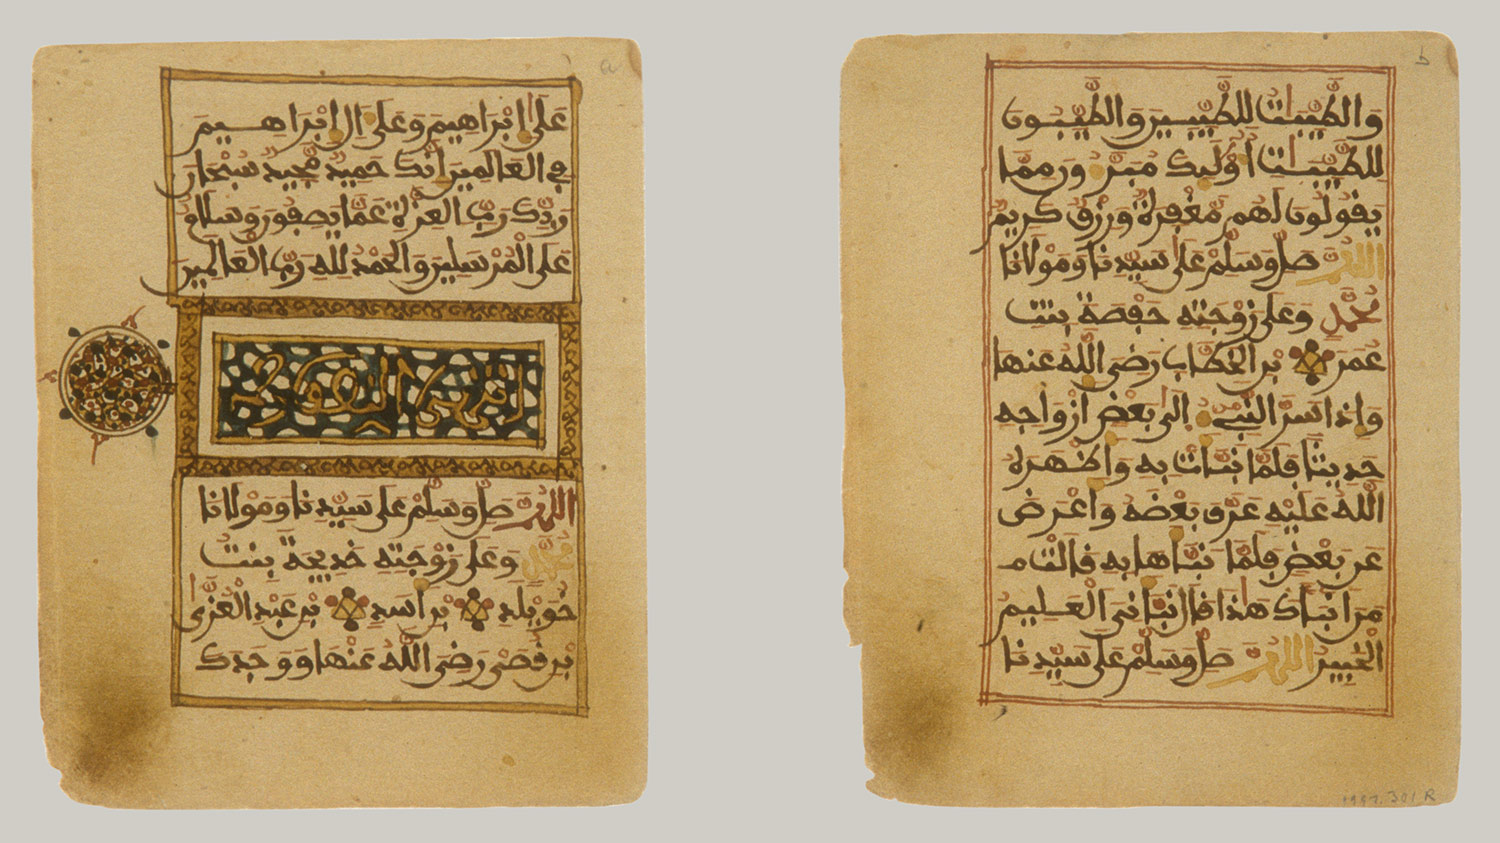 a
على إبراهيم وعلى آل إبراهيم
في العالمين إنك حميد مجيد سبحان
ربك رب العزة عما يصفون وسلام
على المرسلين والحمد لله رب العالمين
اللهم صل وسلم على سيدنا ومولانا
محمد وعلى زوجته خديجة بنت
خويلد بن أسد بن عبد العزى
بن قصي رضي الله عنها ووجدك
b
والطيبات للطيبين والطيبون
للطيبات أولئك مبرءون مما
يقولون لهم مغفرة ورزق كريم
اللهم صل وسلم على سيدنا ومولانا
محمد وعلى زوجته حفصة بنت
عمر بن الخطاب رضي الله عنها
وإذ أسر النبي إلى بعض أزواجه
حديثا فلما نبأت به وأظهره
الله عليه عرف بعضه وأعرض
عن بعض فلما نبأها به قالت
من أنبأك هذا قال نبأني العليم
الخبير اللهم صل وسلم على سيدنا
1997.301 R